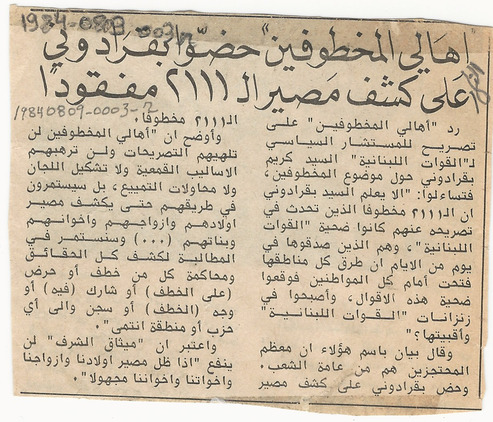 1984-0809-0031r
"اهالي المخطوفين" حضوا بقرادوني
على كشف مصير الـ ٢١١١ مفقودا
19840809-0003-2
رد "أهالي المخطوفين" على
تصريح للمستشار السياسي
لـ"القوات اللبنانية" السيد كريم
بقرادوني حول موضوع المخطوفين،
فتساءلوا: "الا يعلم السيد بقرادوني
ان الـ٢١١١ مخطوفا الذين تحدث في
تصريحه عنهم كانوا ضحية "القوات
اللبنانية"، وهم الذين صدقوها في
يوم من الايام ان طرق كل مناطقها
فتحت أمام كل المواطنين فوقعوا
ضحية هذه الاقوال، وأصبحوا في
زنزانات "القوات اللبنانية"
وأقبيتها؟"
وقال بيان باسم هؤلاء ان معظم
المحتجزين هم من عامة الشعب.
وحض بقرادوني على كشف مصير
الـ٢١١١ مخطوفا.
وأوضح ان "أهالي المخطوفين لن
تلهيهم التصريحات ولن ترهبهم
الاساليب القمعية ولا تشكيل اللجان
ولا محاولات التمييع، بل سيستمرون
في طريقهم حتى يكشف مصير
اولادهم وازواجهم واخوانهم
وبناتهم (...) وسنستمر في
المطالبة لكشف كل الحقائق
ومحاكمة كل من خطف أو حرض
(على الخطف) أو شارك (فيه) أو
وجه (الخطف) أو سجن والى أي
حزب أو منطقة انتمى".
واعتبر ان "ميثاق الشرف" لن
ينفع "اذا ظل مصير اولادنا وازواجنا
واخواتنا واخواننا مجهولا".